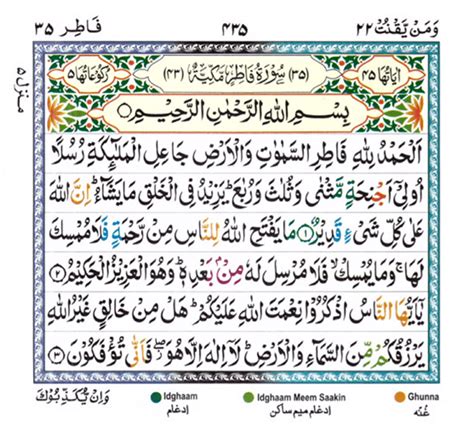 وَمَنْ يَّقْنُتْ ٢٢ ٤٣٥ فَاطِر ٣٥
منزل ٥
اٰيَاتُهَا ٤٥ (٣٥) سُوْرَةُ فَاطِرٍ مَكِّيَّةٌ (٤٣) رُكُوْعَاتُهَا ٥
بِسْمِ اللّٰهِ الرَّحْمٰنِ الرَّحِيْمِ
اَلْحَمْدُ لِلّٰهِ فَاطِرِ السَّمٰوٰتِ وَالْاَرْضِ جَاعِلِ الْمَلٰٓئِكَةِ رُسُلًا
اُولِيْٓ اَجْنِحَةٍ مَّثْنٰى وَثُلٰثَ وَرُبٰعَ ؕ يَزِيْدُ فِي الْخَلْقِ مَا يَشَآءُ ؕ اِنَّ اللّٰهَ
عَلٰى كُلِّ شَيْءٍ قَدِيْرٌ ﴿١﴾ مَا يَفْتَحِ اللّٰهُ لِلنَّاسِ مِنْ رَّحْمَةٍ فَلَا مُمْسِكَ
لَهَا ۚ وَمَا يُمْسِكْ ۙ فَلَا مُرْسِلَ لَهٗ مِنْۢ بَعْدِهٖ ؕ وَهُوَ الْعَزِيْزُ الْحَكِيْمُ ﴿٢﴾
يٰٓاَيُّهَا النَّاسُ اذْكُرُوْا نِعْمَتَ اللّٰهِ عَلَيْكُمْ ؕ هَلْ مِنْ خَالِقٍ غَيْرُ اللّٰهِ
يَرْزُقُكُمْ مِّنَ السَّمَآءِ وَالْاَرْضِ ؕ لَاۤ اِلٰهَ اِلَّا هُوَ ۖ فَاَنّٰى تُؤْفَكُوْنَ ﴿٣﴾
وَاِنْ يُّكَذِّبُوْكَ
Idghaam Idghaam Meem Saakin Ghunna
ادغام ادغام میم ساکن غُنّه